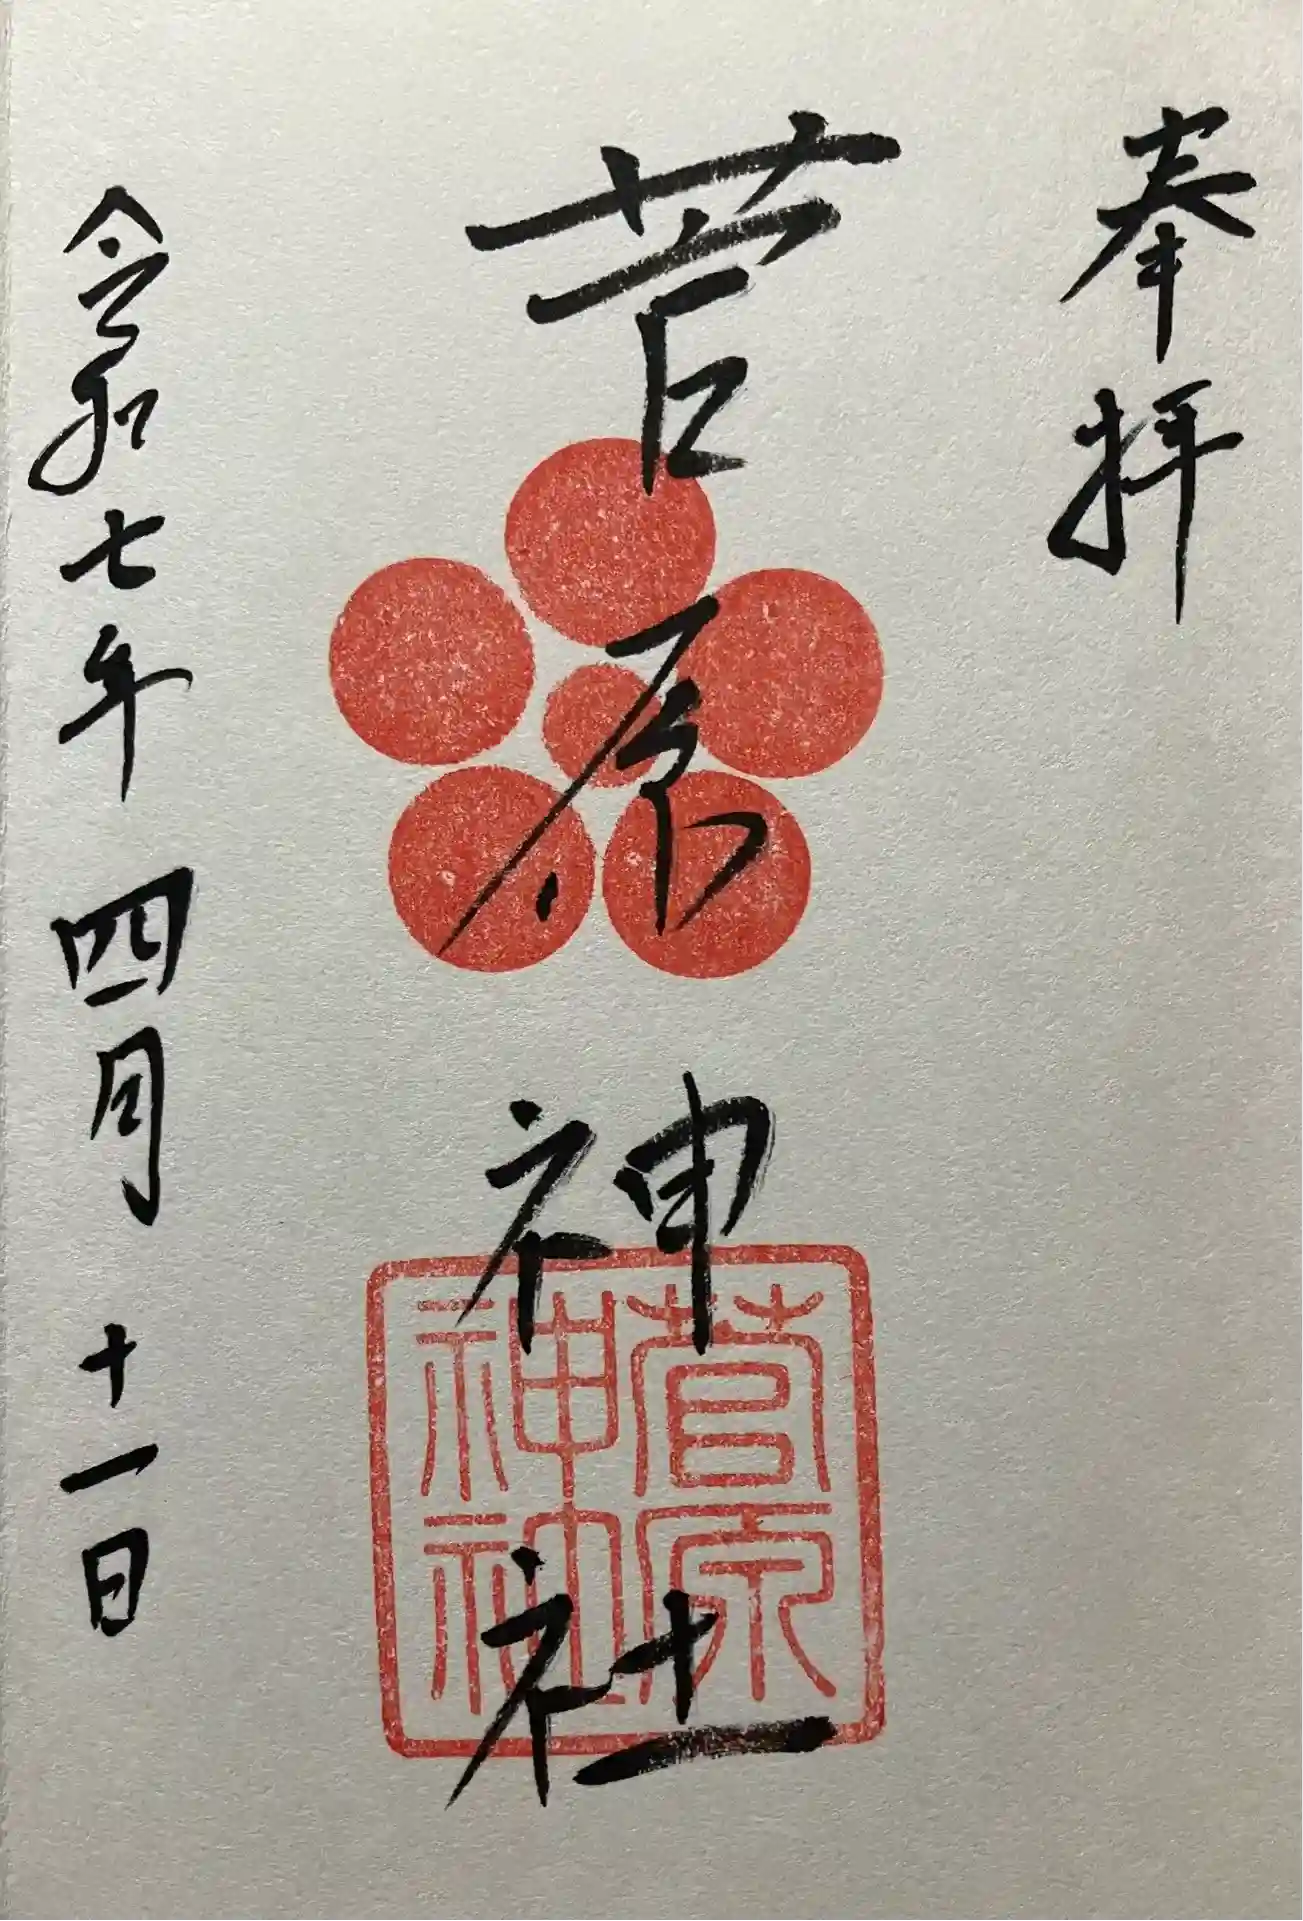 奉拝
菅原神社
菅原
神社
令和七年 四月 十一日